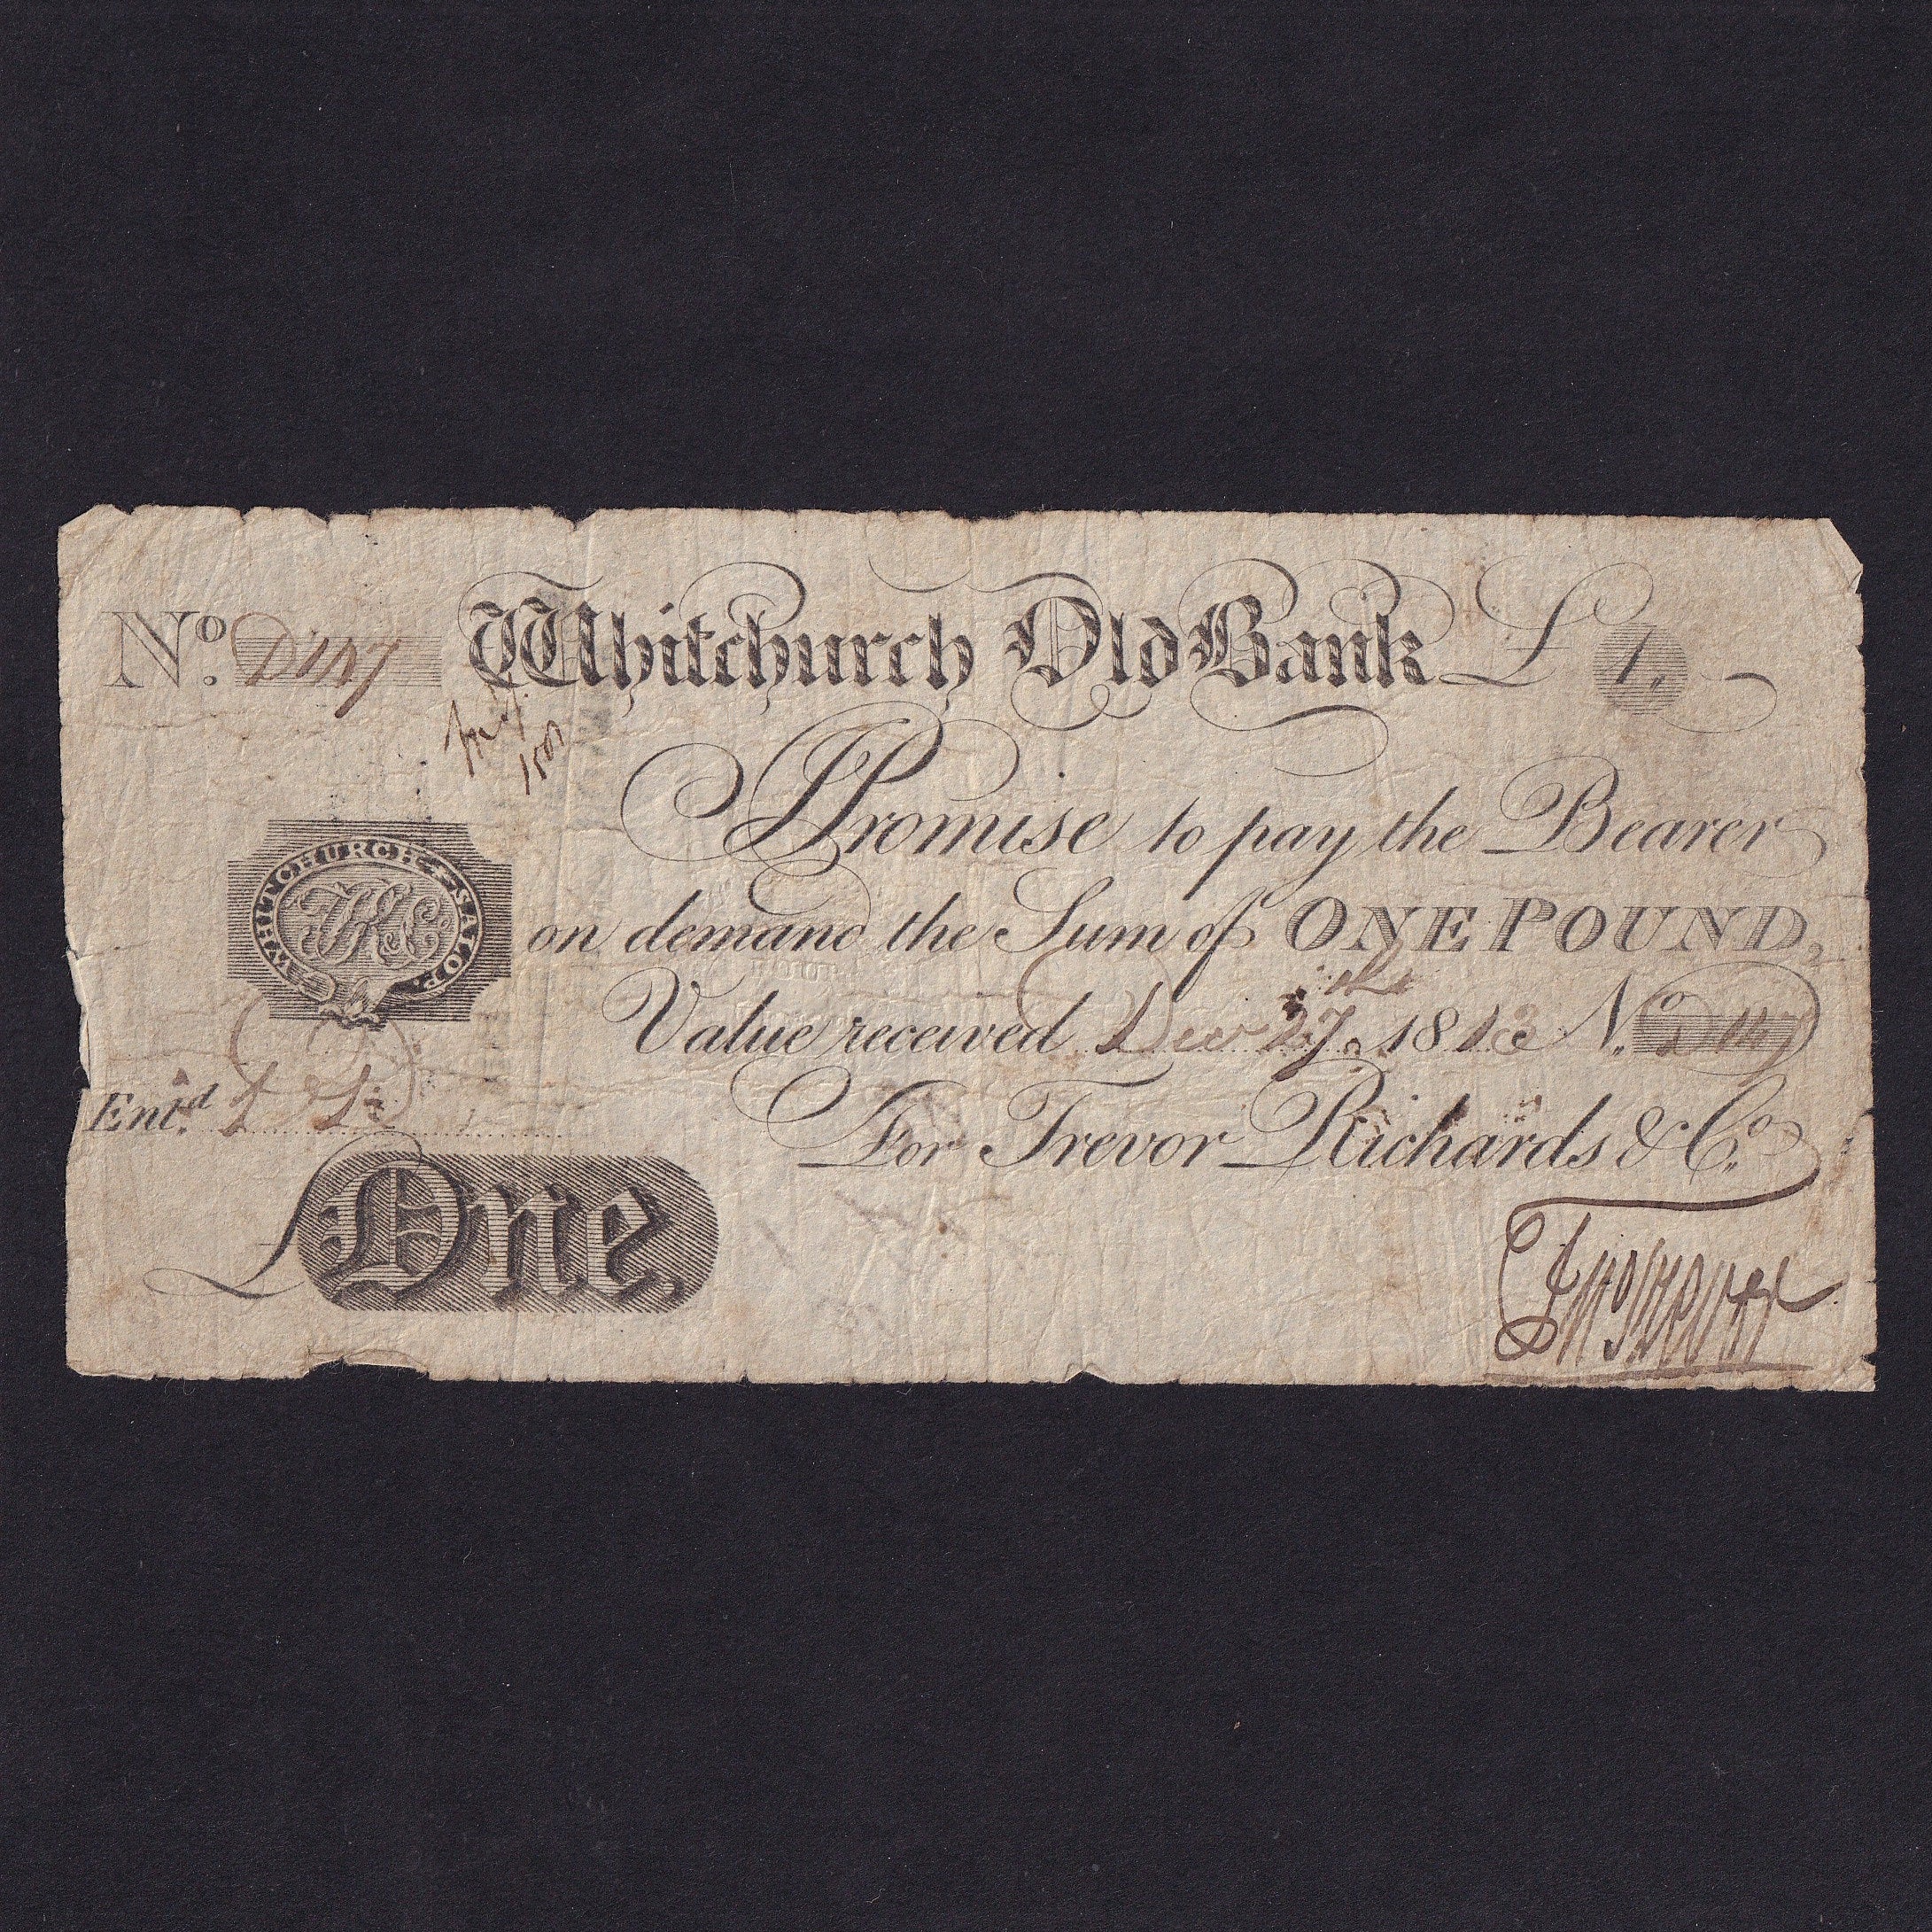 No. D1147 Whitchurch Old Bank £1.
I Promise to pay the Bearer
on demand the Sum of ONE POUND,
Value received Decr 27th 1813 No. D1147
WHITCHURCH SALOP.
TR&Co
Entd.
For Trevor Richards & Co.
£One.